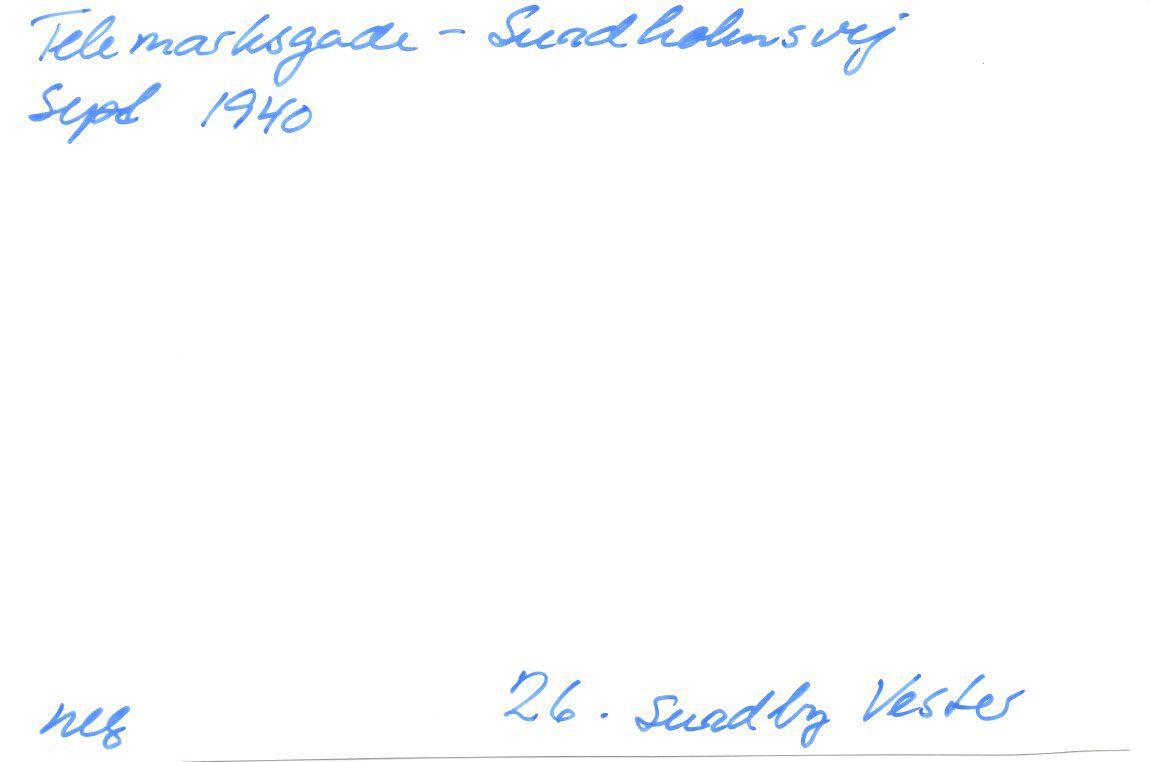 Telemarksgade - Sundholmsvej
Sept 1940
neg
26. Sundby Vester